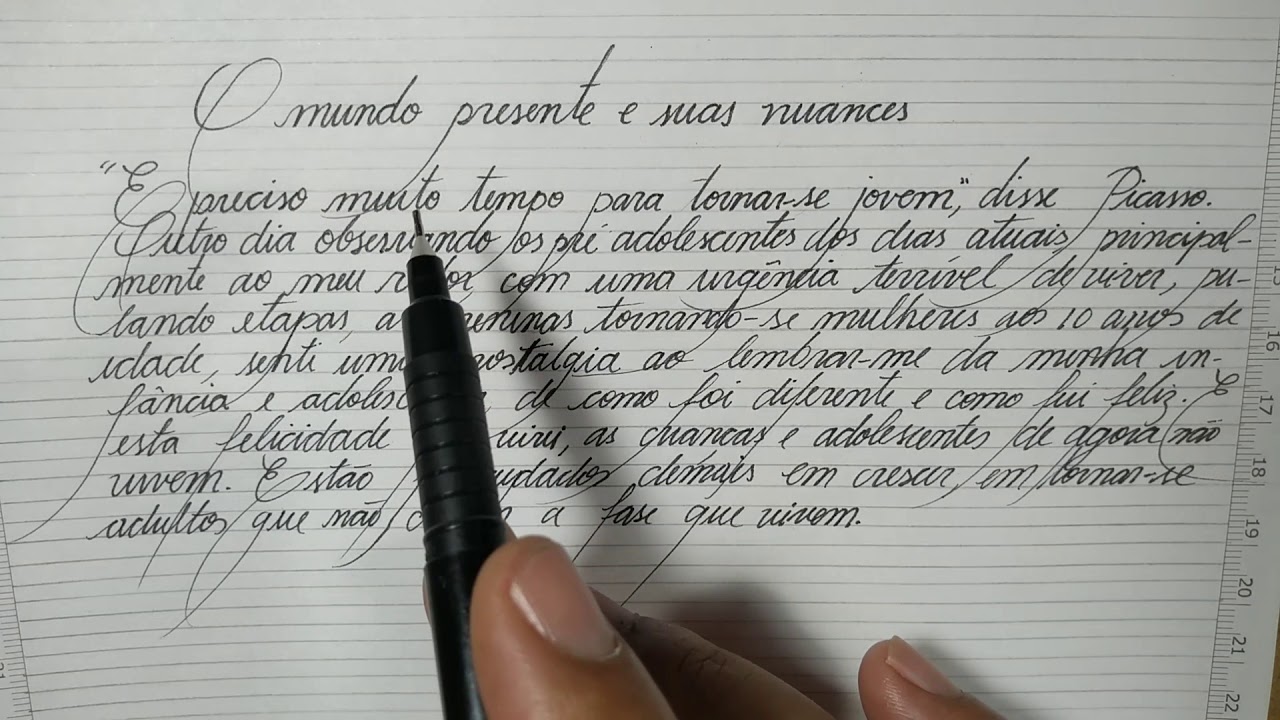 O mundo presente e suas nuances
"E preciso muito tempo para tornar-se jovem", disse Picasso.
Outro dia observando os pré adolescentes dos dias atuais, principal-
mente ao meu com uma urgência terrível de viver, pu-
lando etapas, as meninas tornando-se mulheres aos 10 anos de
idade, senti uma nostalgia ao lembrar-me da minha in-
fância e de como foi diferente e como fui feliz. E
esta felicidade as crianças e adolescentes de agora não
vivem. Estão demais em crescer, em tornar-se
adultos que não a fase que vivem.
15
16
17
18
19
20
21
22